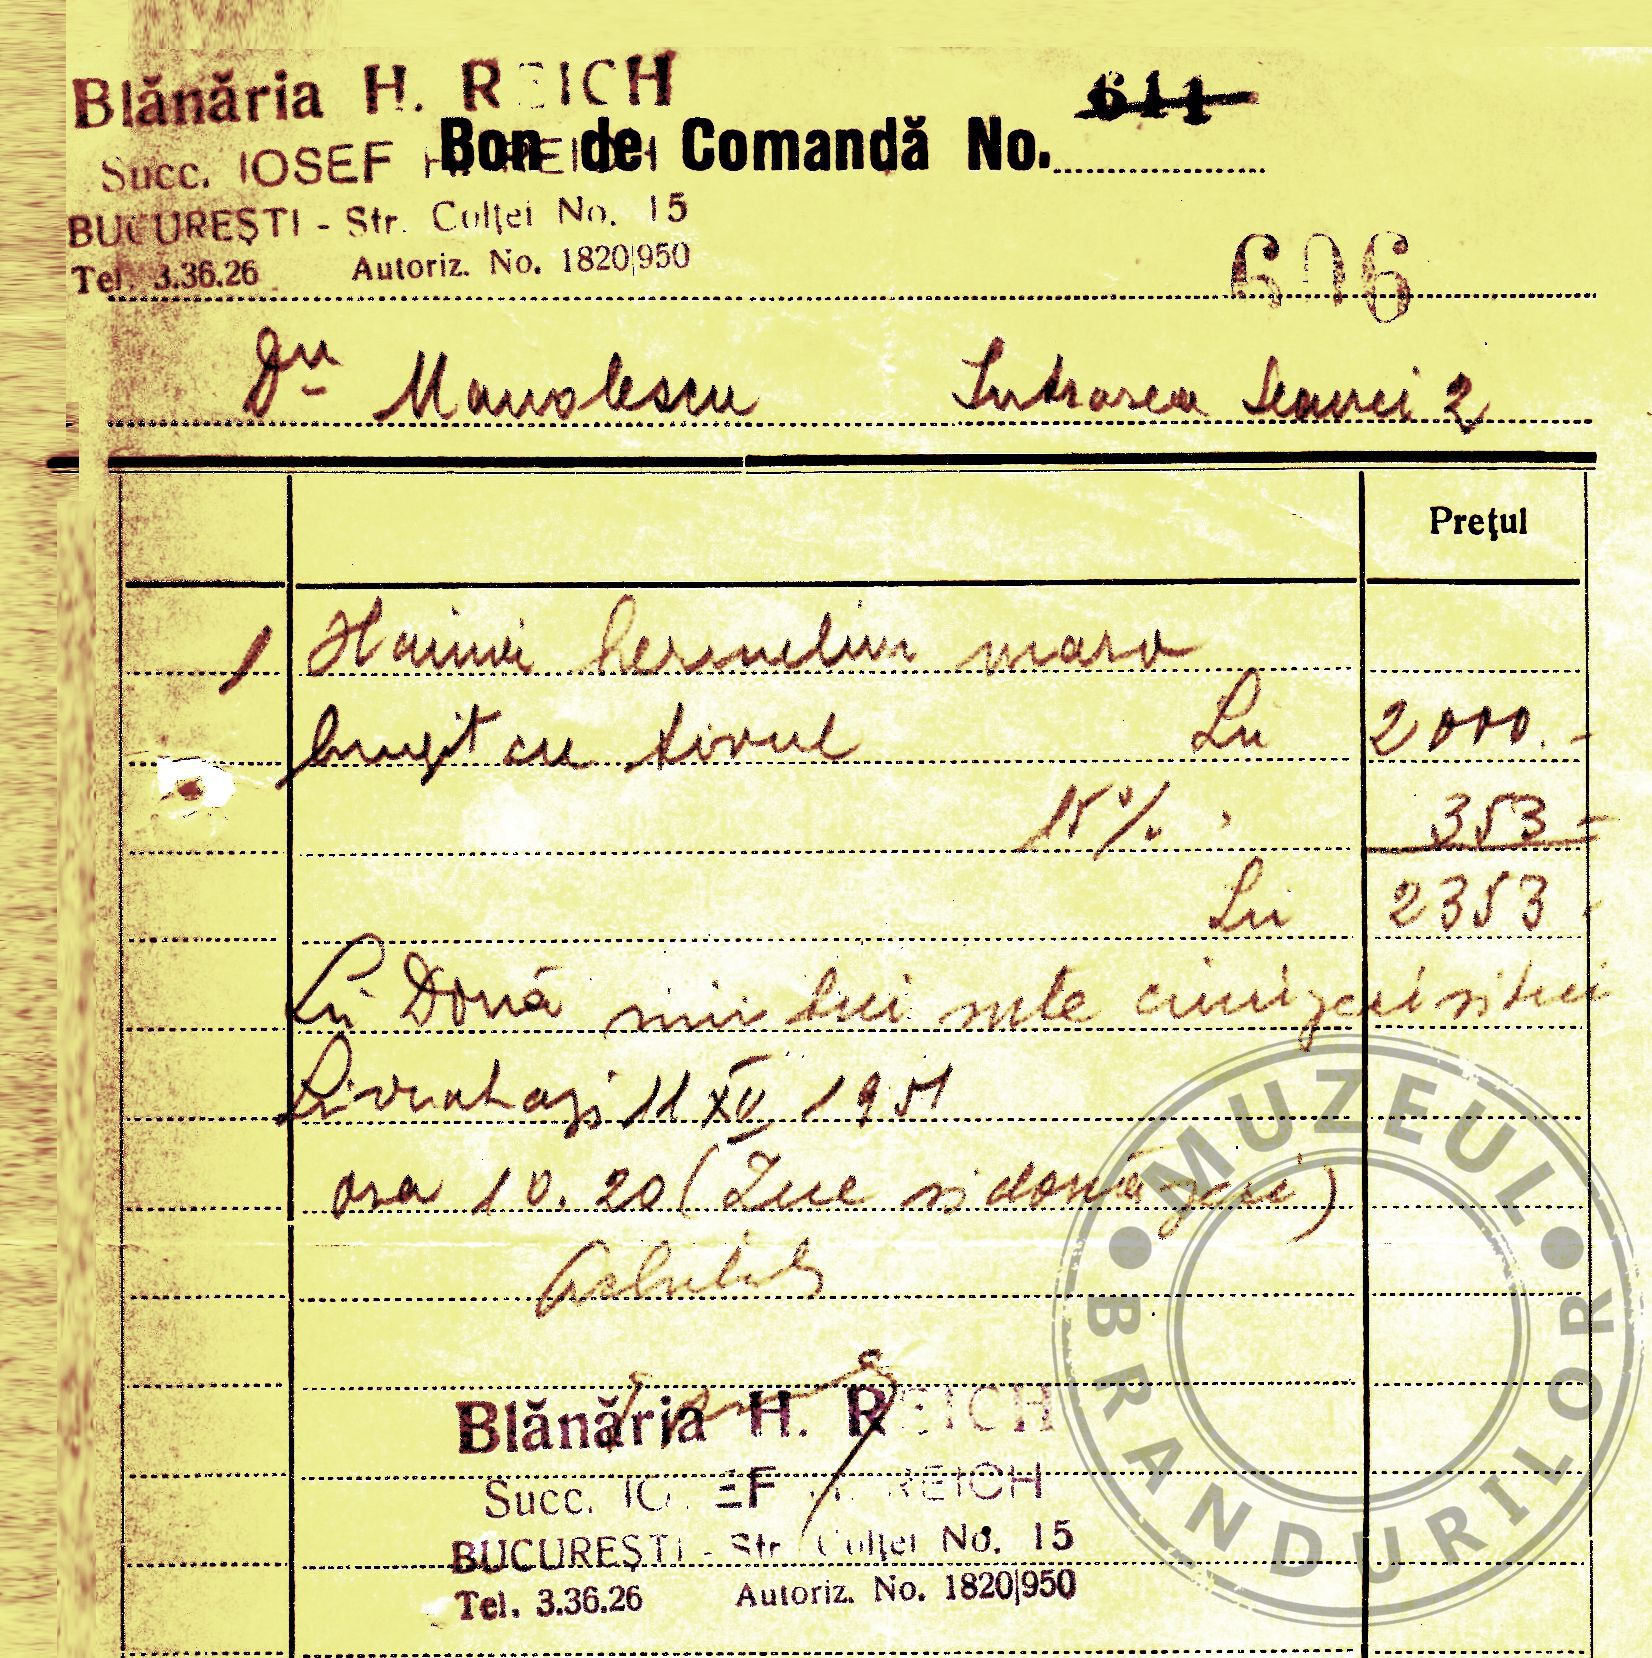 Blănăria H. REICH
Succ. IOSEF H. REICH
BUCUREȘTI - Str. Colței No. 15
Tel. 3.36.26 Autoriz. No. 1820|950
Bon de Comandă No. 611
606
Dn Manolescu Intrarea 2
Prețul
1 Haină hermelin maro
cu tivul Lei 2000.-
15% 353=
Lei 2353.
Lei Două mii trei sute cinizeci si trei
11 XII 1951
ora 10.20 (Zece si două zeci)
Achitat
Blănăria H. REICH
Succ. IOSEF H. REICH
BUCUREȘTI - Str. Colței No. 15
Tel. 3.36.26 Autoriz. No. 1820|950
MUZEUL BRANDURILOR